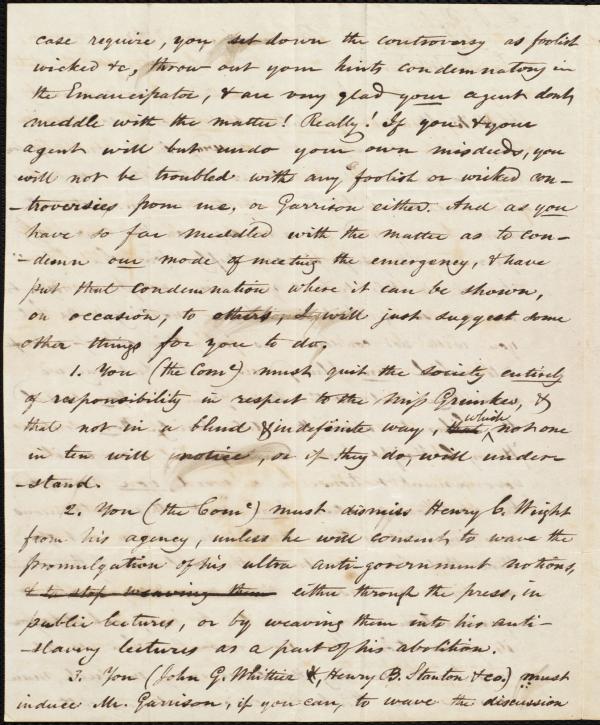 case require, you set down the controversy as foolish
wicked &c, throw out your hints condemnatory in
the Emancipator, & are very glad your agent don't
meddle with the matter! Really! If you & your
agent will but undo your own misdeeds, you
will not be troubled with any foolish or wicked con-
-troversies from me, or Garrison either. And as you
have so far meddled with the matter as to con-
-demn our mode of meeting the emergency, & have
put that condemnation where it can be shown,
on occasion, to others, I will just suggest some
other things for you to do.
1. You (the Comᵉ) must quit the society entirely
of responsibility in respect to the Miss Grimkes, &
that not in a blind & indefinite way, which not one
in ten will notice, or if they do, will under-
-stand.
2. You (the Comᵉ) must dismiss Henry C. Wright
from his agency, unless he will consent to wave the
promulgation of his ultra anti-government notions,
& to stop weaving them either through the press, in
public lectures, or by weaving them into his anti-
-slavery lectures as a part of his abolition.
3. You (John G. Whittier, Henry B. Stanton & co.) must
induce Mr. Garrison, if you can, to wave the discussion